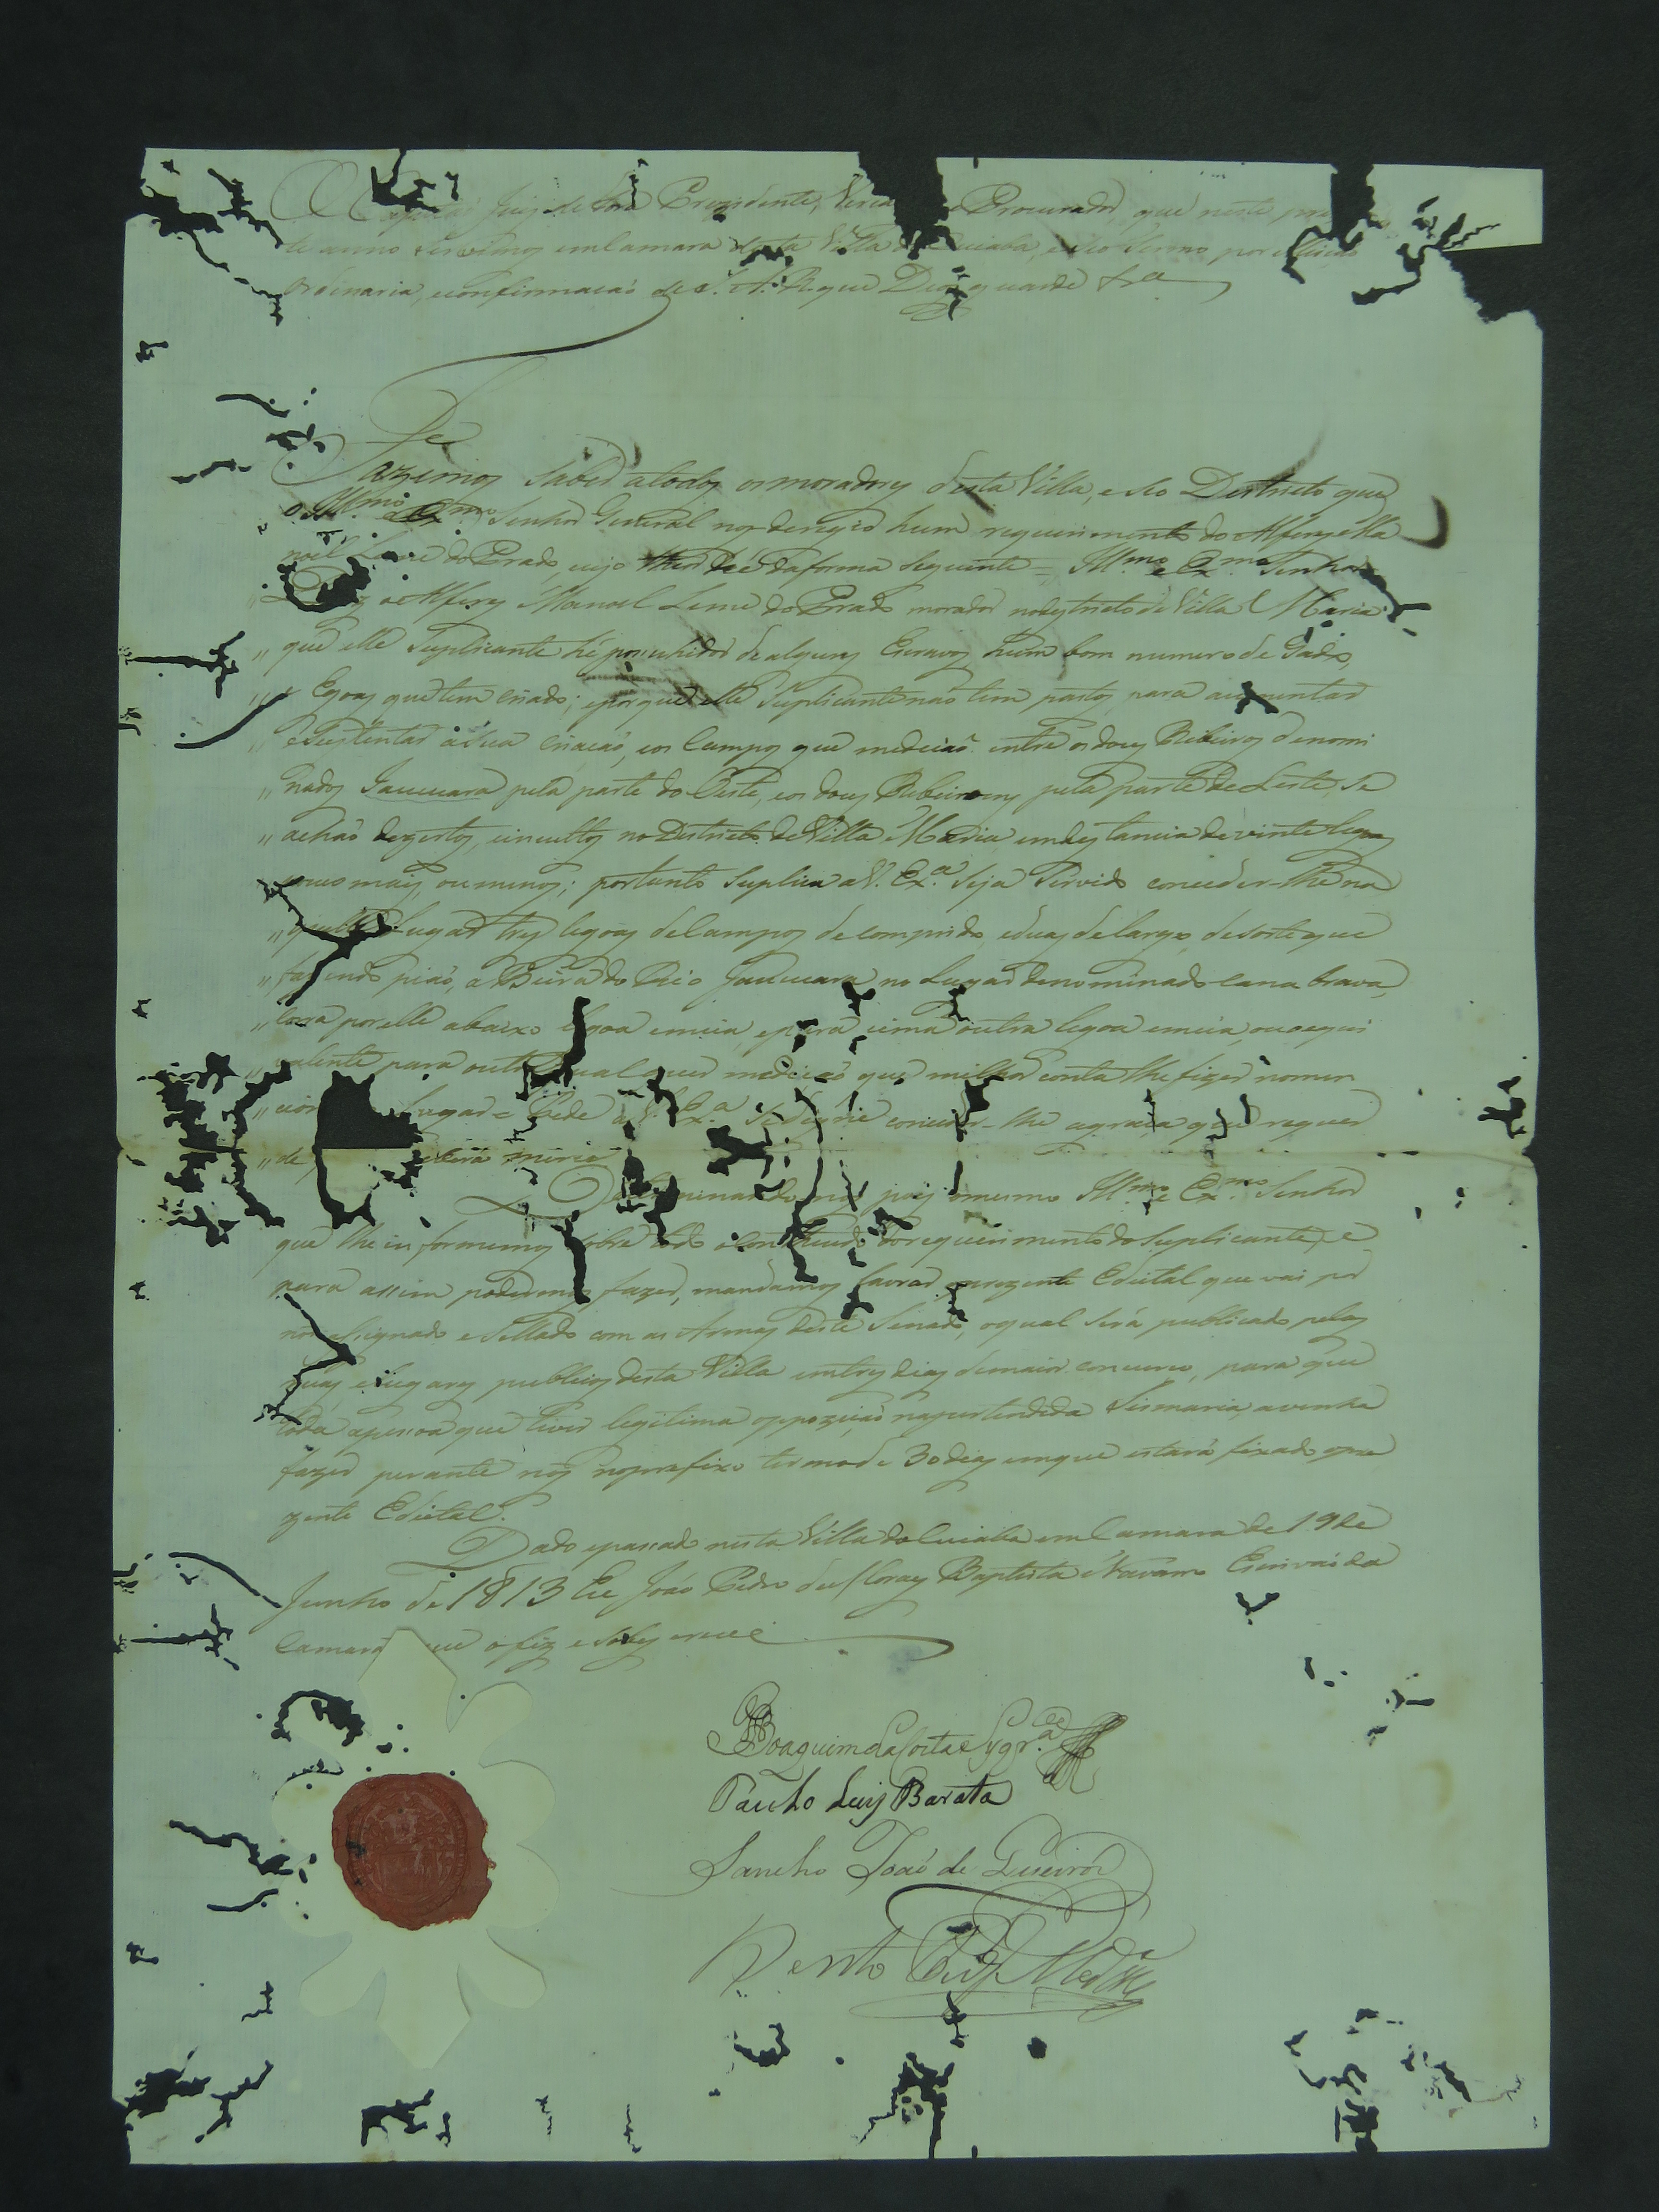 Juiz de fora Prezidente, Verea e Procurador, que neste prez
te anno servimos em Camara desta Villa do Cuiabá, e seo Termo por elleicaõ
Ordinaria, e confirmacaõ de S. A. R. que Deos guarde &ca
Fazemos saber a todos os moradores desta Villa, e seo Destricto que
o Illmo. e Exmo. Senhor General nos deregio hum requerimento do Alferes Ma
noel Leme do Prado, cujo theor hé da forma seguinte = Illmo. e Exmo. Senhor
" o Alferes Manoel Leme do Prado morador no destricto de Villa Maria
" que elle Suplicante hé possuhidor de alguns Escravos, hum bom numero de Gado,
" e Egoas que tem criado; e porque elle Suplicante naõ tem pastos para aumentar
" e Sustentar a sua criacaõ, e os Campos que medeiaõ entre os dous Ribeiros denomi
" nados Jaucuara pela parte do Oeste, e os dous Ribeiroens pela parte de Leste, se
" achaõ dezertos, e incultos no Destricto de Villa Maria em destancia de vinte legoas
pouco mais, ou menos; portanto Suplica a V. Exa. seja servido conceder-lhe na
" quelle Lugar tres legoas de Campos de comprido, e duas de largo, de sorte que
" fazendo piaõ, a Beira do Rio Jaucuara no Lugar denominado cana brava,
" corra por elle abaixo legoa e meia, e para cima outra legoa e meia, ou o equi
valente para outra qualquer mediçaõ que melhor conta lhe fizer no men
" cion Lugar = Pede a V. Exa. Se digne conceder-lhe a graça que requer
" de ceberá mercê
Determinando-nos pois o mesmo Illmo. e Exmo. Senhor
que lhe informemos sobre todo o contheudo do requerimento do Suplicante, e
para assim podermos fazer, mandamos lavrar o prezente Edictal que vai por
nos assignado e Sellado com as Armas deste Senado, o qual será publicado pelas
ruas, e lugares publicos desta Villa em tres dias de maior concurso, para que
toda a pessoa que tiver legitima oppoziçaõ na pertendida Sismaria, a venha
fazer perante nós no prefixo termo de 30 dias em que estará fixado o pre
zente Edictal.
Dado e passado nesta Villa do Cuiaba em Camara de 19 de
Junho de 1813 Eu Joaõ Pedro das Chagas Baptista Navarro Escrivaõ da
Camara que o fiz e sobescrevi
Joaquim da Costa e Sygra.
Paulo Luis Barata
Sancho Joaõ de Queiros
Bento